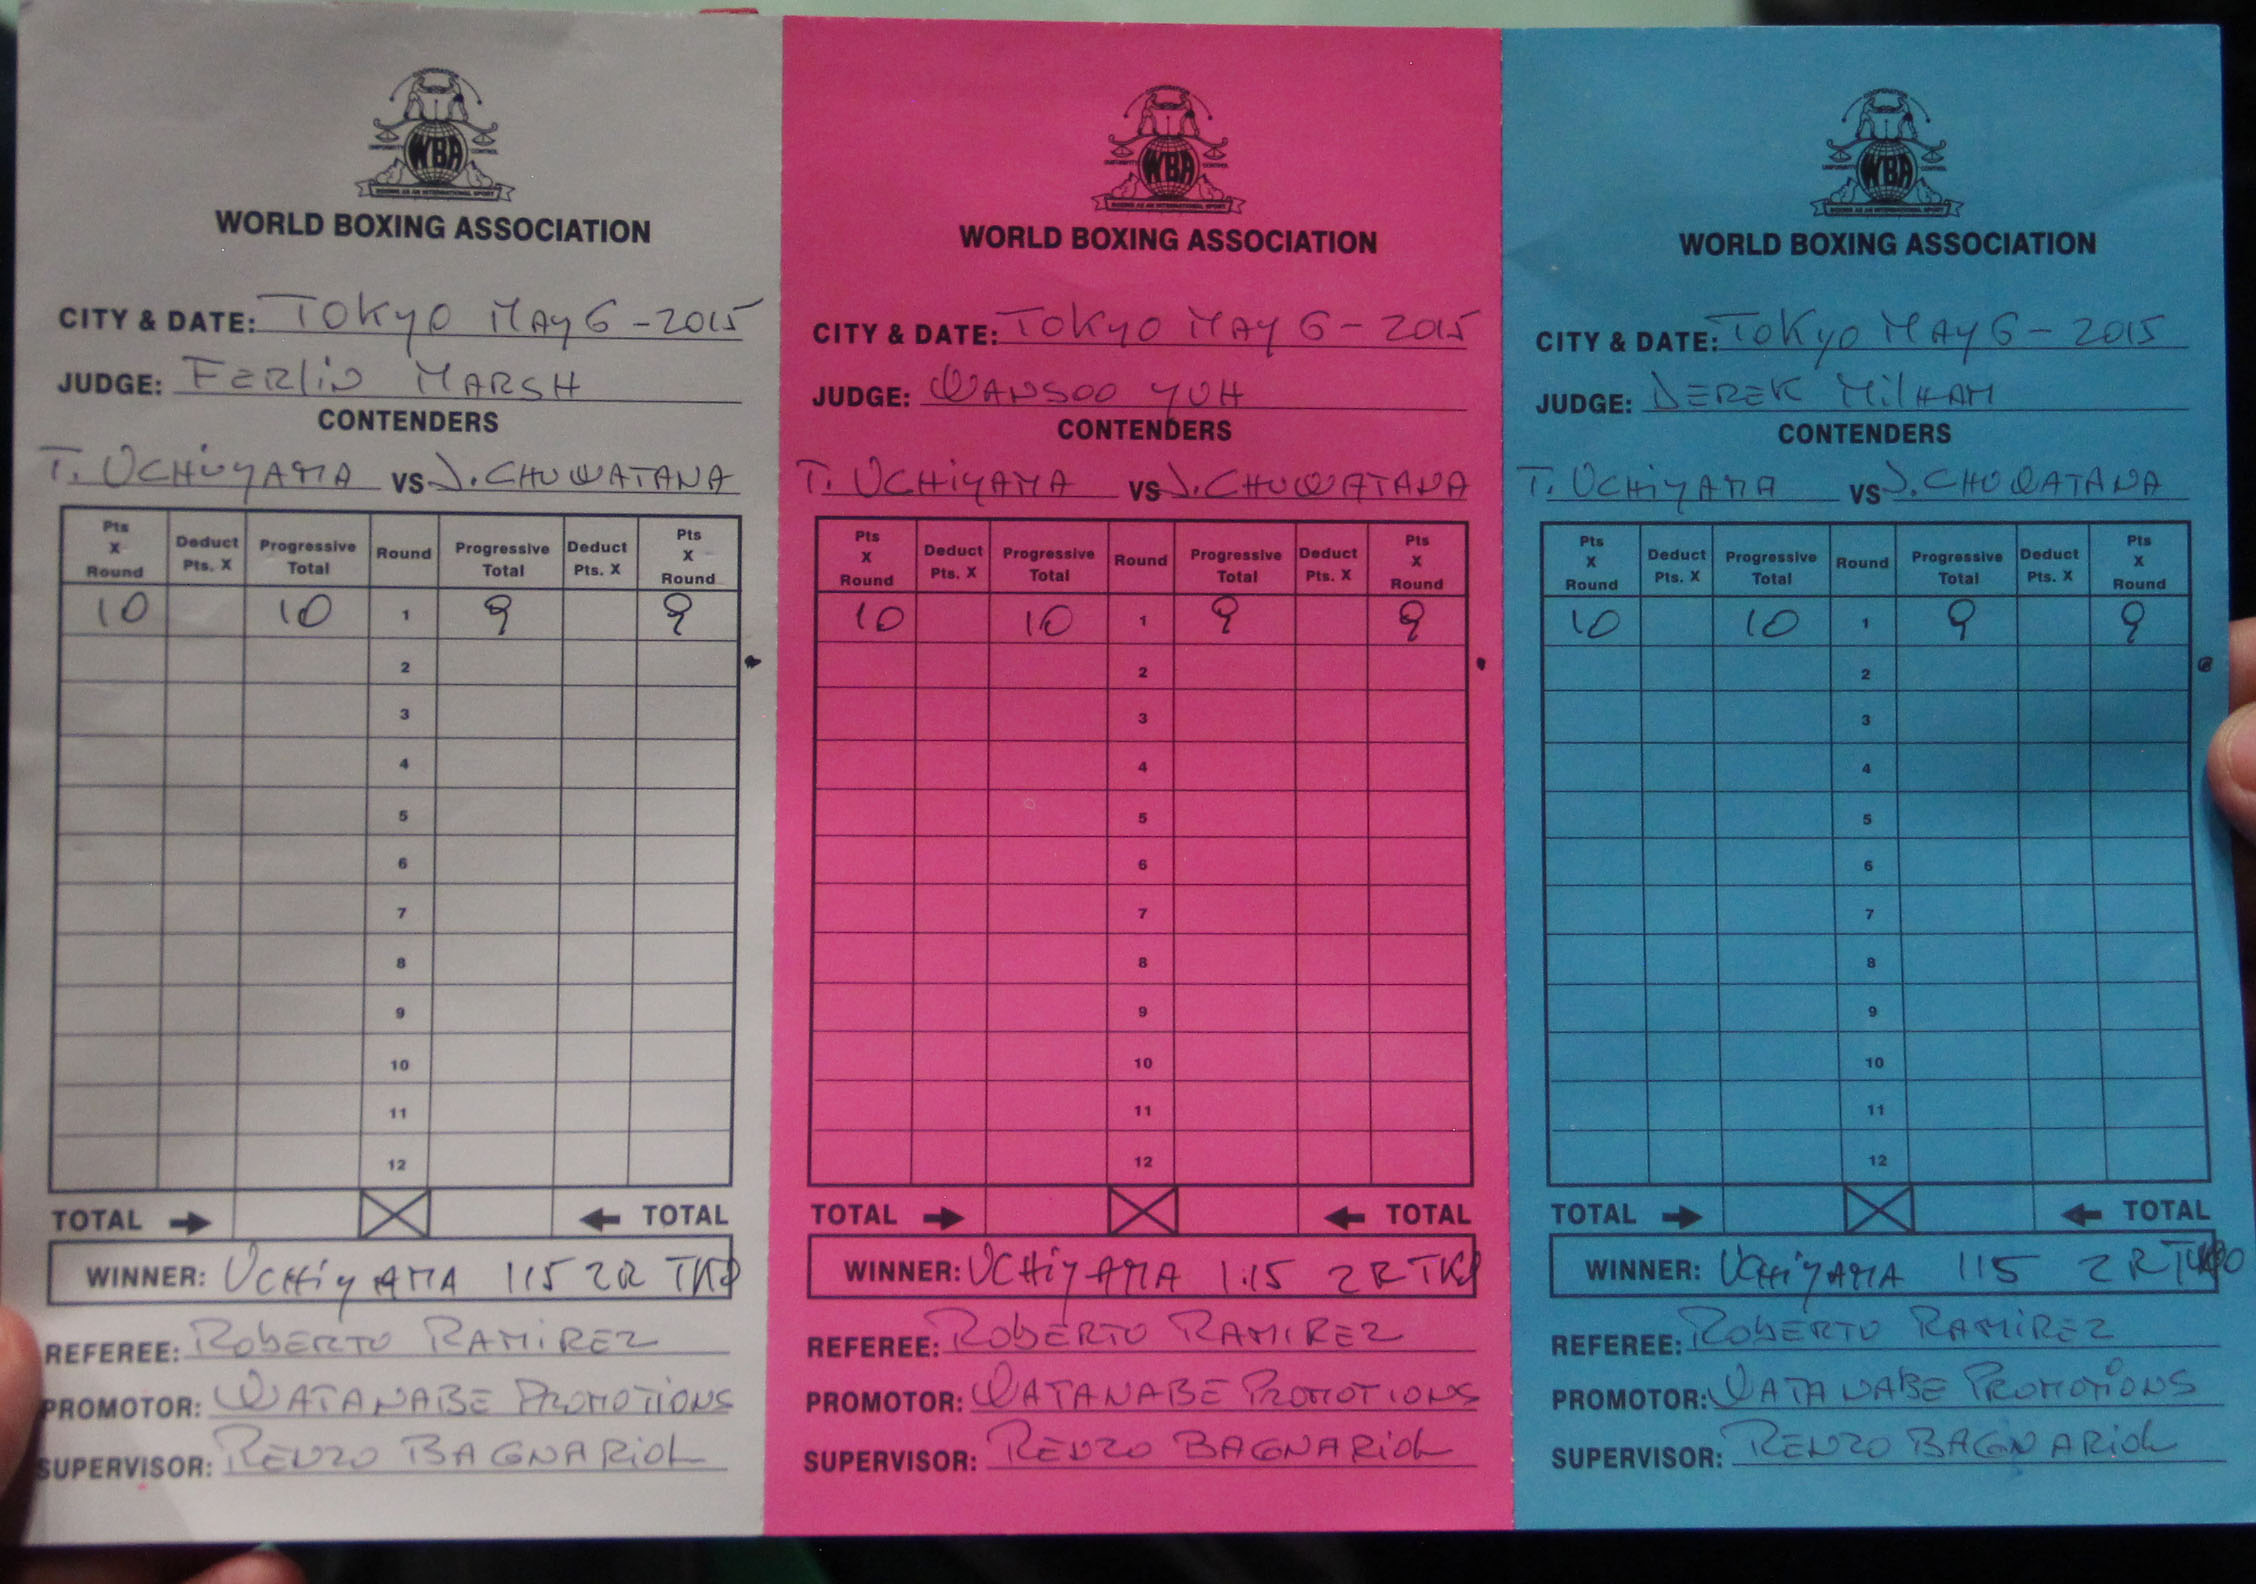 COOPERATION
UNIFORMITY CONTROL
WBA
BOXING AS AN INTERNATIONAL SPORT
WORLD BOXING ASSOCIATION
CITY & DATE: TOKyO MAy 6 - 2015
JUDGE: FERLiN MARSH
CONTENDERS
T. UCHiyAMA VS J. CHUWATANA
Pts X Round Deduct Pts. X Progressive Total Round Progressive Total Deduct Pts. X Pts X Round
10 10 1 9 9
2
3
4
5
6
7
8
9
10
11
12
TOTAL TOTAL
WINNER: UCHiyAMA 115 2R TKO
REFEREE: RObERTO RAMiREZ
PROMOTOR: WATANABE PROMOTIONS
SUPERVISOR: RENZO BAGNARiOL
COOPERATION
UNIFORMITY CONTROL
WBA
BOXING AS AN INTERNATIONAL SPORT
WORLD BOXING ASSOCIATION
CITY & DATE: TOKyO MAy 6 - 2015
JUDGE: WANSOO YUH
CONTENDERS
T. UCHiyAMA VS J. CHUWATANA
Pts X Round Deduct Pts. X Progressive Total Round Progressive Total Deduct Pts. X Pts X Round
10 10 1 9 9
2
3
4
5
6
7
8
9
10
11
12
TOTAL TOTAL
WINNER: UCHiyAMA 1.15 2R TKO
REFEREE: RObERTO RAMIREZ
PROMOTOR: WATANABE PROMOTIONS
SUPERVISOR: RENZO BAGNARiOL
COOPERATION
UNIFORMITY CONTROL
WBA
BOXING AS AN INTERNATIONAL SPORT
WORLD BOXING ASSOCIATION
CITY & DATE: TOKyO MAy 6 - 2015
JUDGE: DEREK MiLHAM
CONTENDERS
T. UCHiyAMA VS J. CHUWATANA
Pts X Round Deduct Pts. X Progressive Total Round Progressive Total Deduct Pts. X Pts X Round
10 10 1 9 9
2
3
4
5
6
7
8
9
10
11
12
TOTAL TOTAL
WINNER: UCHiyAMA 115 2R TKO
REFEREE: RObERTO RAMiREZ
PROMOTOR: WATANABE PROMOTIONS
SUPERVISOR: RENZO BAGNARiOL